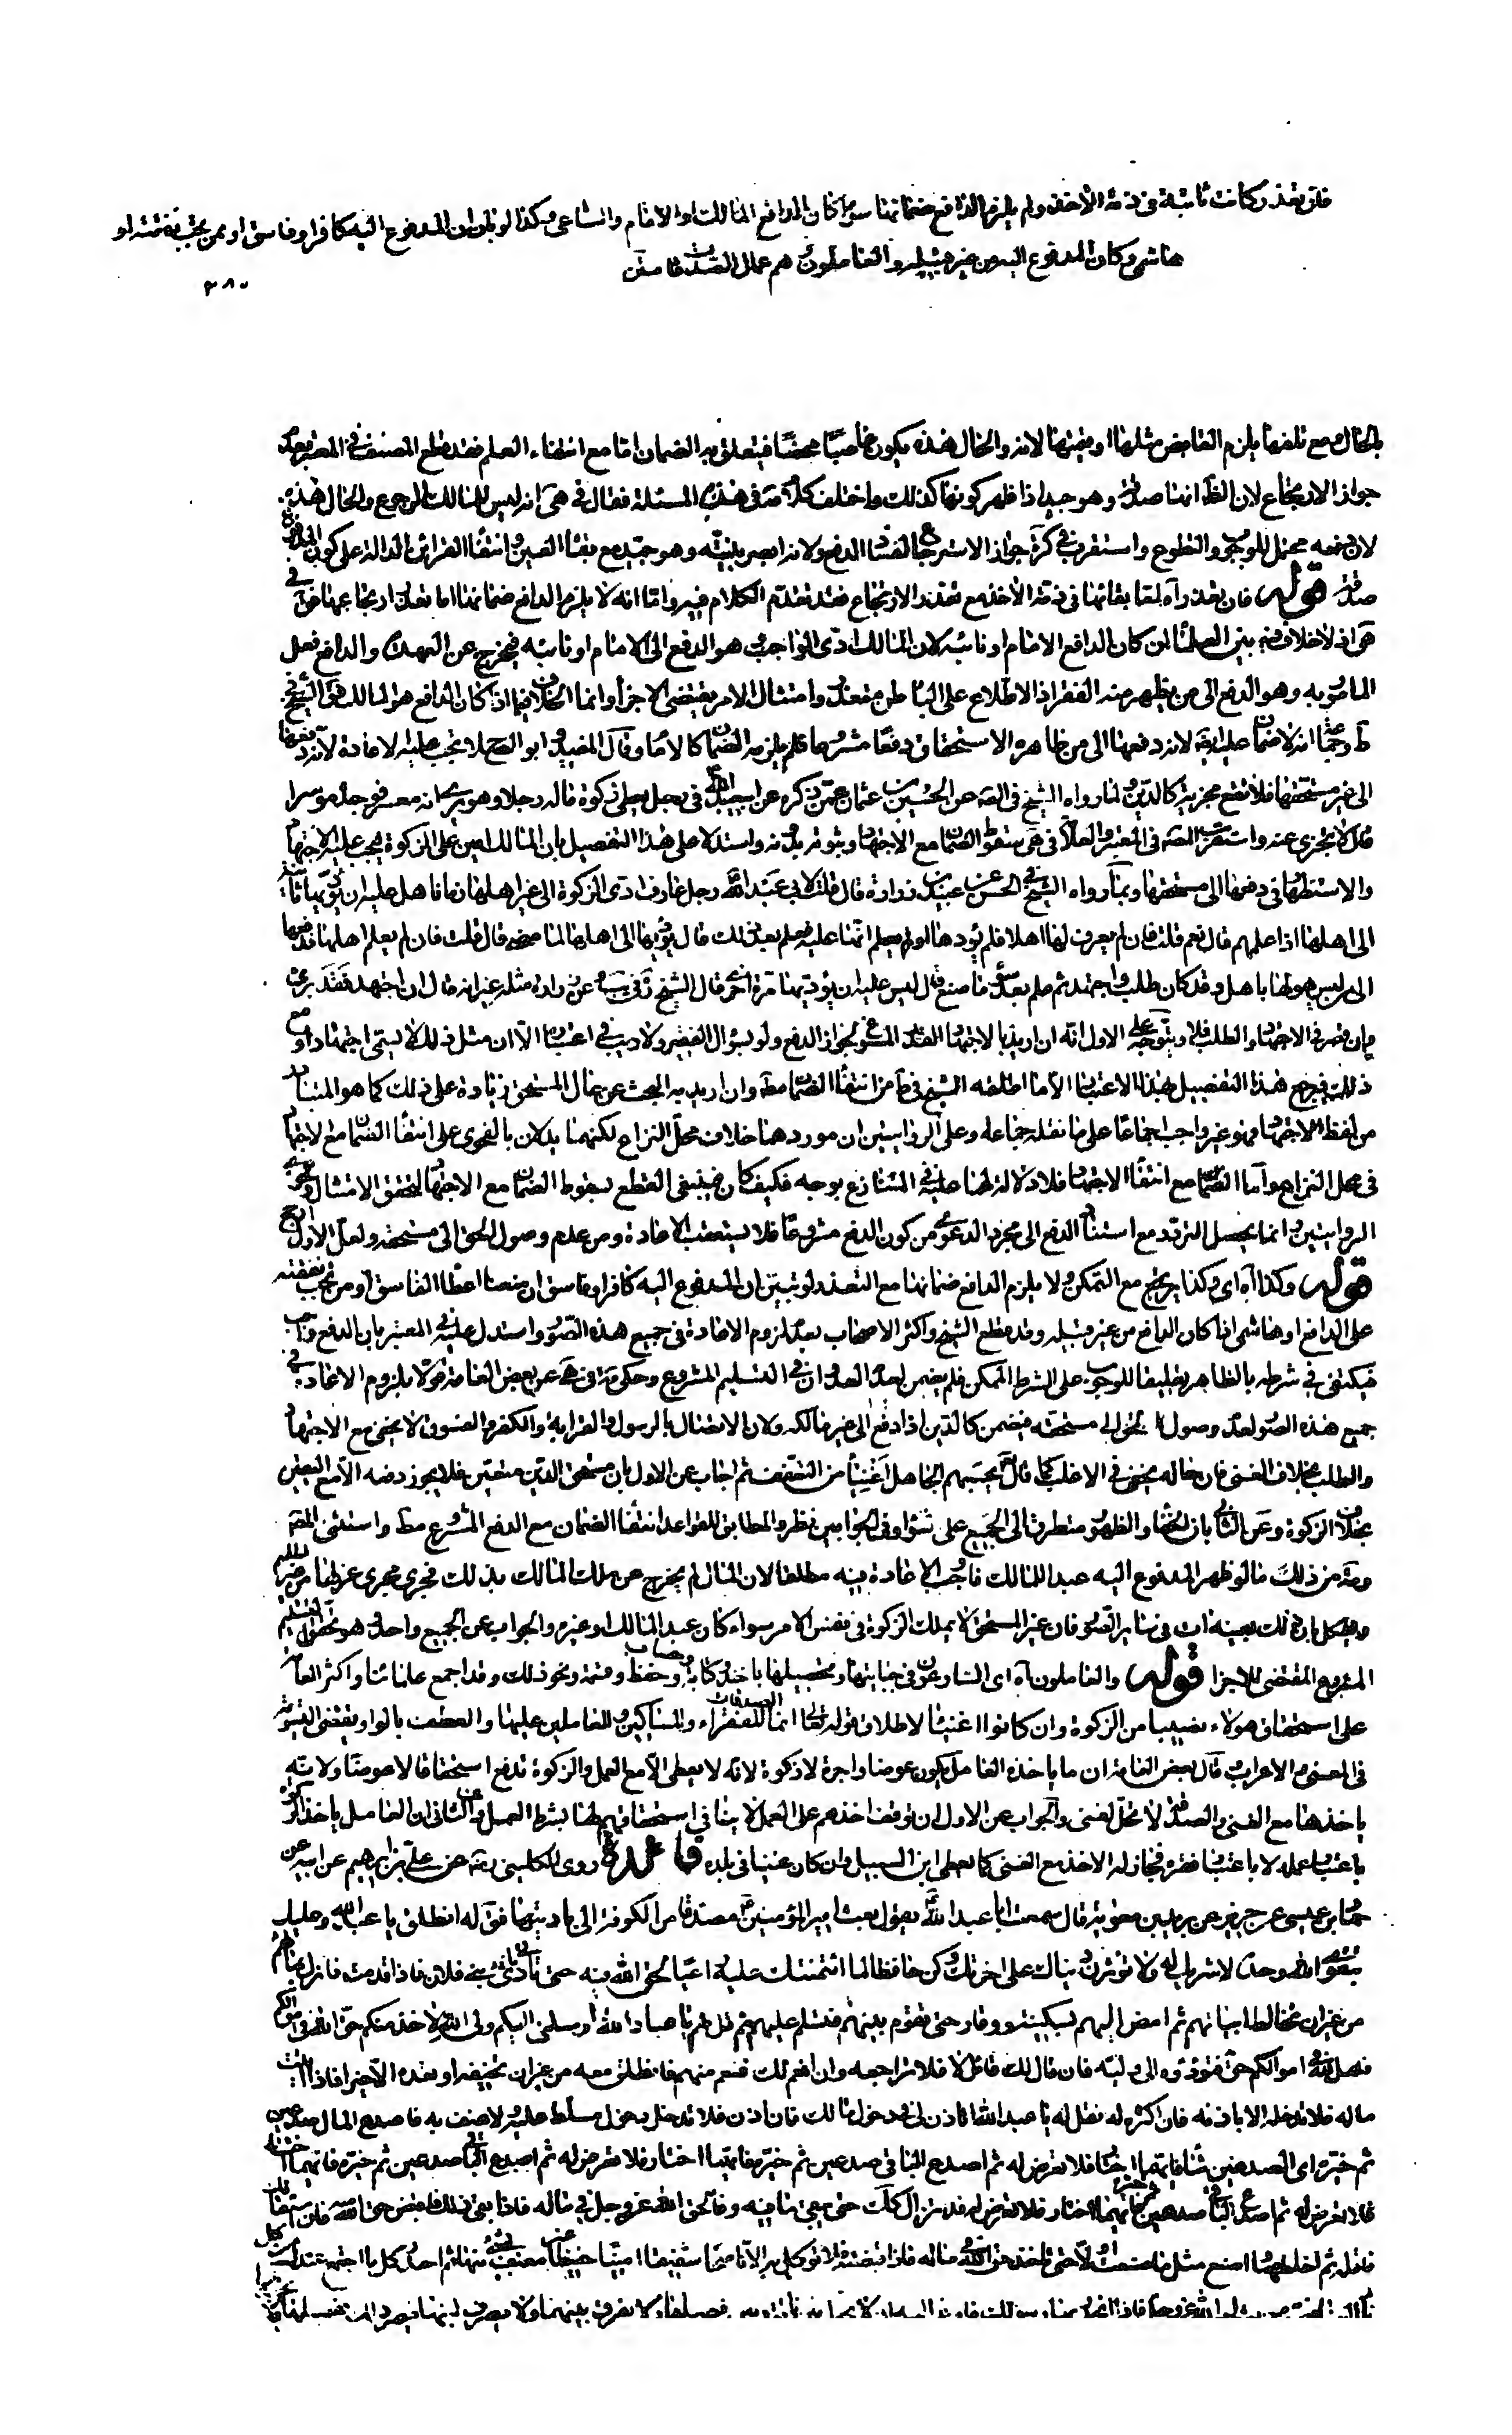 فان تعذر كانت ثابتة في ذمة الآخذ ولم يلزم الدافع ضمانها سواء كان الدافع المالك او الامام والساعي وكذا لو بان ان المدفوع اليه كافر او فاسق او ممن تجب نفقته او
هاشمي وكان المدفوع اليه من غير قبيله والعاملون هم عمال الصدقات
٣٨٠
بالحال ومع تلفها يلزم القابض مثلها او قيمتها لانه والحال هذه يكون غاصبا محضا فيتعلق به الضمان اما مع انتفاء العلم فقد قطع المصنف في المعتبر بعدم
جواز الارتجاع لان الظ انها صدقة وهو جيد اذا ظهر كونها كذلك واختلف كلام مة في هذه المسئلة فقال في هى انه ليس للمالك الرجوع والحال هذه
لان دفعه محتمل للوجوب والتطوع واستقرب في كرة جواز الاسترجاع لفساد الدفع ولانه ابصر بنيته وهو جيد مع بقاء العين وانتفاء القرائن الدالة على كون المدفوع
صدقة قوله فان تعذر آه اما بقائها في ذمة الآخذ مع تعذر الارتجاع فقد تقدم الكلام فيه واما انه لا يلزم الدافع ضمانها اما تعذر ارتجاعها فق في
هى انه لا خلاف فيه بين العلماء ان كان الدافع الامام او نائبه لان المالك ادى الواجب وهو الدفع الى الامام او نائبه فيخرج عن العهدة والدافع فعل
المأمور به وهو الدفع الى من يظهر منه الفقر اذ الاطلاع على الباطن متعذر وامتثال الامر يقتضي الاجزاء وانما الخلاف فيما اذا كان الدافع هو المالك فق الشيخ في
ط وجماعة انه لا ضمان عليه ايضا لانه دفعها الى من ظاهره الاستحقاق دفعا مشروعا فلم يلزمه الضمان كالامام وقال المفيد وابو الصلاح تجب عليه الاعادة لانه دفعها
الى غير مستحقها فلا تقع مجزية كالدين ولما رواه الشيخ في الصه عن الحسين بن عثمان عمن ذكره عن ابي عبد الله ع في رجل يعطى زكوة ماله رجلا وهو يرى انه معسر فوجده موسرا
قال لا تجزى عنه واستقرب المصه في المعتبر والعلامة في هى سقوط الضمان مع الاجتهاد وثبوته بدونه واستدلا على هذا التفصيل بان المالك امين على الزكوة فيجب عليه الاجتهاد
والاستظهار في دفعها الى مستحقها وبما رواه الشيخ في الحسن عن عبيد بن زرارة قال قلت لابي عبد الله رجل عارف ادى الزكوة الى غير اهلها زمانا هل عليه ان يؤديها ثانية
الى اهلها اذا علمهم قال نعم قلت فان لم يعرف لها اهلا فلم يؤدها او لم يعلم انها عليه فعلم بعد ذلك قال يؤديها الى اهلها لما مضى قال قلت فان لم يعلم اهلها فدفعها
الى من ليس هو لها باهل وقد كان طلب واجتهد ثم علم بعد سوء ما صنع قال ليس عليه ان يؤديها مرة اخرى قال الشيخ ره وفي يب وعن زرارة مثله غير انه قال ان اجتهد فقد برئ
وان قصر في الاجتهاد والطلب فلا ويتوجه على الاول انه ان اريد بالاجتهاد القدر المسوغ لجواز الدفع ولو بسؤال الفقير فلا ريب في اعتباره الا ان مثل ذلك لا يسمى اجتهادا ومع
ذلك فيرجع هذا التفصيل بهذا الاعتبار الى ما اطلقه الشيخ في ط من انتفاء الضمان مط وان اريد به البحث عن حال المستحق زيادة على ذلك كما هو المتبادر
من لفظ الاجتهاد فهو غير واجب اجماعا على ما نقله جماعة وعلى الروايتين ان موردهما خلاف محل النزاع لكنهما يدلان بالفحوى على انتفاء الضمان مع الاجتهاد
في محل النزاع واما الضمان مع انتفاء الاجتهاد فلا دلالة لهما عليه في المتنازع بوجه فكيف كان فينبغي القطع بسقوط الضمان مع الاجتهاد لتحقق الامتثال وفحوى
الروايتين وانما يحصل التردد مع استناد الدفع الى مجرد الدعوى من كون الدفع مشروعا فلا يستعقب الاعادة ومن عدم وصول الحق الى مستحقه ولعل الاول ارجح
قوله وكذا آه اي وكذا يرتجع مع التمكن ولا يلزم الدافع ضمانها مع التعذر لو تبين ان المدفوع اليه كافر او فاسق ان منعنا اعطاء الفاسق او من تجب نفقته
على الدافع او هاشمي اذا كان الدافع من غير قبيله وقد قطع الشيخ واكثر الاصحاب بعدم لزوم الاعادة في جميع هذه الصور واستدل عليه في المعتبر بان الدفع واجب
فيكتفى في شرطه بالظاهر تعليقا للوجوب على الشرط الممكن فلم يضمن لعدم العدوان في التسليم المشروع وحكى مة في هى عن بعض العامة قولا بلزوم الاعادة في
جميع هذه الصور لعدم وصول الحق الى مستحقه فيضمن كالدين اذا دفع الى غير مالكه ولان الاتصال بالرسول والقرابة والكفر والفسوق لا يخفى مع الاجتهاد
والطلب بخلاف الغنى فان حاله يخفى في الاغلب كما قال تع يحسبهم الجاهل اغنياء من التعفف ثم اجاب عن الاول بان مستحق الدين متعين فلا يجوز دفعه الا مع اليقين
بخلاف الزكوة وعن الثاني بان الخفاء والظهور متطرق الى الجميع على تساو وفي الجوابين نظر والمطابق للقواعد انتفاء الضمان مع الدفع المشروع مط واستثنى المصه
ومة من ذلك ما لو ظهر المدفوع اليه عبد المالك فاوجب الاعادة فيه مطلقا لان المال لم يخرج عن ملك المالك بذلك فجرى مجرى عزلها من غير تسليم
ويشكل بان ذلك بعينه ات في سائر الصور فان غير المستحق لا يملك الزكوة في نفس الامر سواء كان عبد المالك او غيره والجواب عن الجميع واحد وهو تحقق التسليم
المشروع المقتضى للاجزاء قوله والعاملون آه اي الساعون في جبايتها وتحصيلها باخذ وكتابة وحساب وحفظ وقسمة ونحو ذلك وقد اجمع علمائنا واكثر العامة
على استحقاق هولاء نصيبا من الزكوة وان كانوا اغنياء لاطلاق قوله تعالى انما الصدقات للفقراء والمساكين والعاملين عليها والعطف بالواو يقتضى التسوية
في المعنى والاعراب وقال بعض العامة ان ما ياخذه العامل يكون عوضا واجرة لا زكوة لانه لا يعطى الا مع العمل والزكوة تدفع استحقاقا لا عوضا ولانه
ياخذها مع الغنى والصدقة لا تحل لغنى والجواب عن الاول ان توقف اخذهم على العمل لا ينافي استحقاقهم لها بشرط العمل وعن الثاني ان العامل ياخذ الزكوة
باعتبار عمله لا باعتبار فقره فجاز له الاخذ مع الغنى كما يعطى ابن السبيل وان كان غنيا في بلده فائدة روى الكليني ره عن علي بن ابراهيم عن ابيه عن
حماد بن عيسى عن حريز عن بريد بن معوية قال سمعت ابا عبد الله ع يقول بعث امير المؤمنين ع مصدقا من الكوفة الى باديتها فق له انطلق يا عبد الله وعليك
بتقوى الله وحده لا شريك له ولا تؤثرن دنياك على اخرتك وكن حافظا لما ائتمنتك عليه راعيا لحق الله فيه حتى تأتي نادى بني فلان فاذا قدمت فانزل بمائهم
من غير ان تخالط ابياتهم ثم امض اليهم بسكينة ووقار حتى تقوم بينهم فتسلم عليهم ثم قل لهم يا عباد الله ارسلني اليكم ولي الله لاخذ منكم حق الله في اموالكم
فهل لله في اموالكم حق فتؤدوه الى وليه فان قال لك قائل لا فلا تراجعه وان انعم لك منعم منهم فانطلق معه من غير ان تخيفه او تعده الا خيرا فاذا اتيت
ماله فلا تدخله الا باذنه فان اكثره له فقل له يا عبد الله اتاذن لي في دخول مالك فان اذن فلا تدخل دخول مسلط عليه ولا عنف به فاصدع المال صدعين
ثم خيره اي الصدعين شاء فايهما اختار فلا تعرض له ثم اصدع الباقي صدعين ثم خيره فايهما اختار
فلا تعرض له ثم اصدع الباقي صدعين ثم خيره فايهما اختار فلا تعرض له فلا تزال كذلك حتى يبقى ما فيه وفاء لحق الله عز وجل في ماله فاذا بقى ذلك فاقبض حق الله منه فان استقالك
فاقله ثم اخلطهما واصنع مثل ما صنعت اولا حتى تاخذ حق الله في ماله فاذا قبضته فلا توكل به الا ناصحا شفيقا امينا حفيظا غير معنف بشيء منها ثم احدر كل ما اجتمع عندك